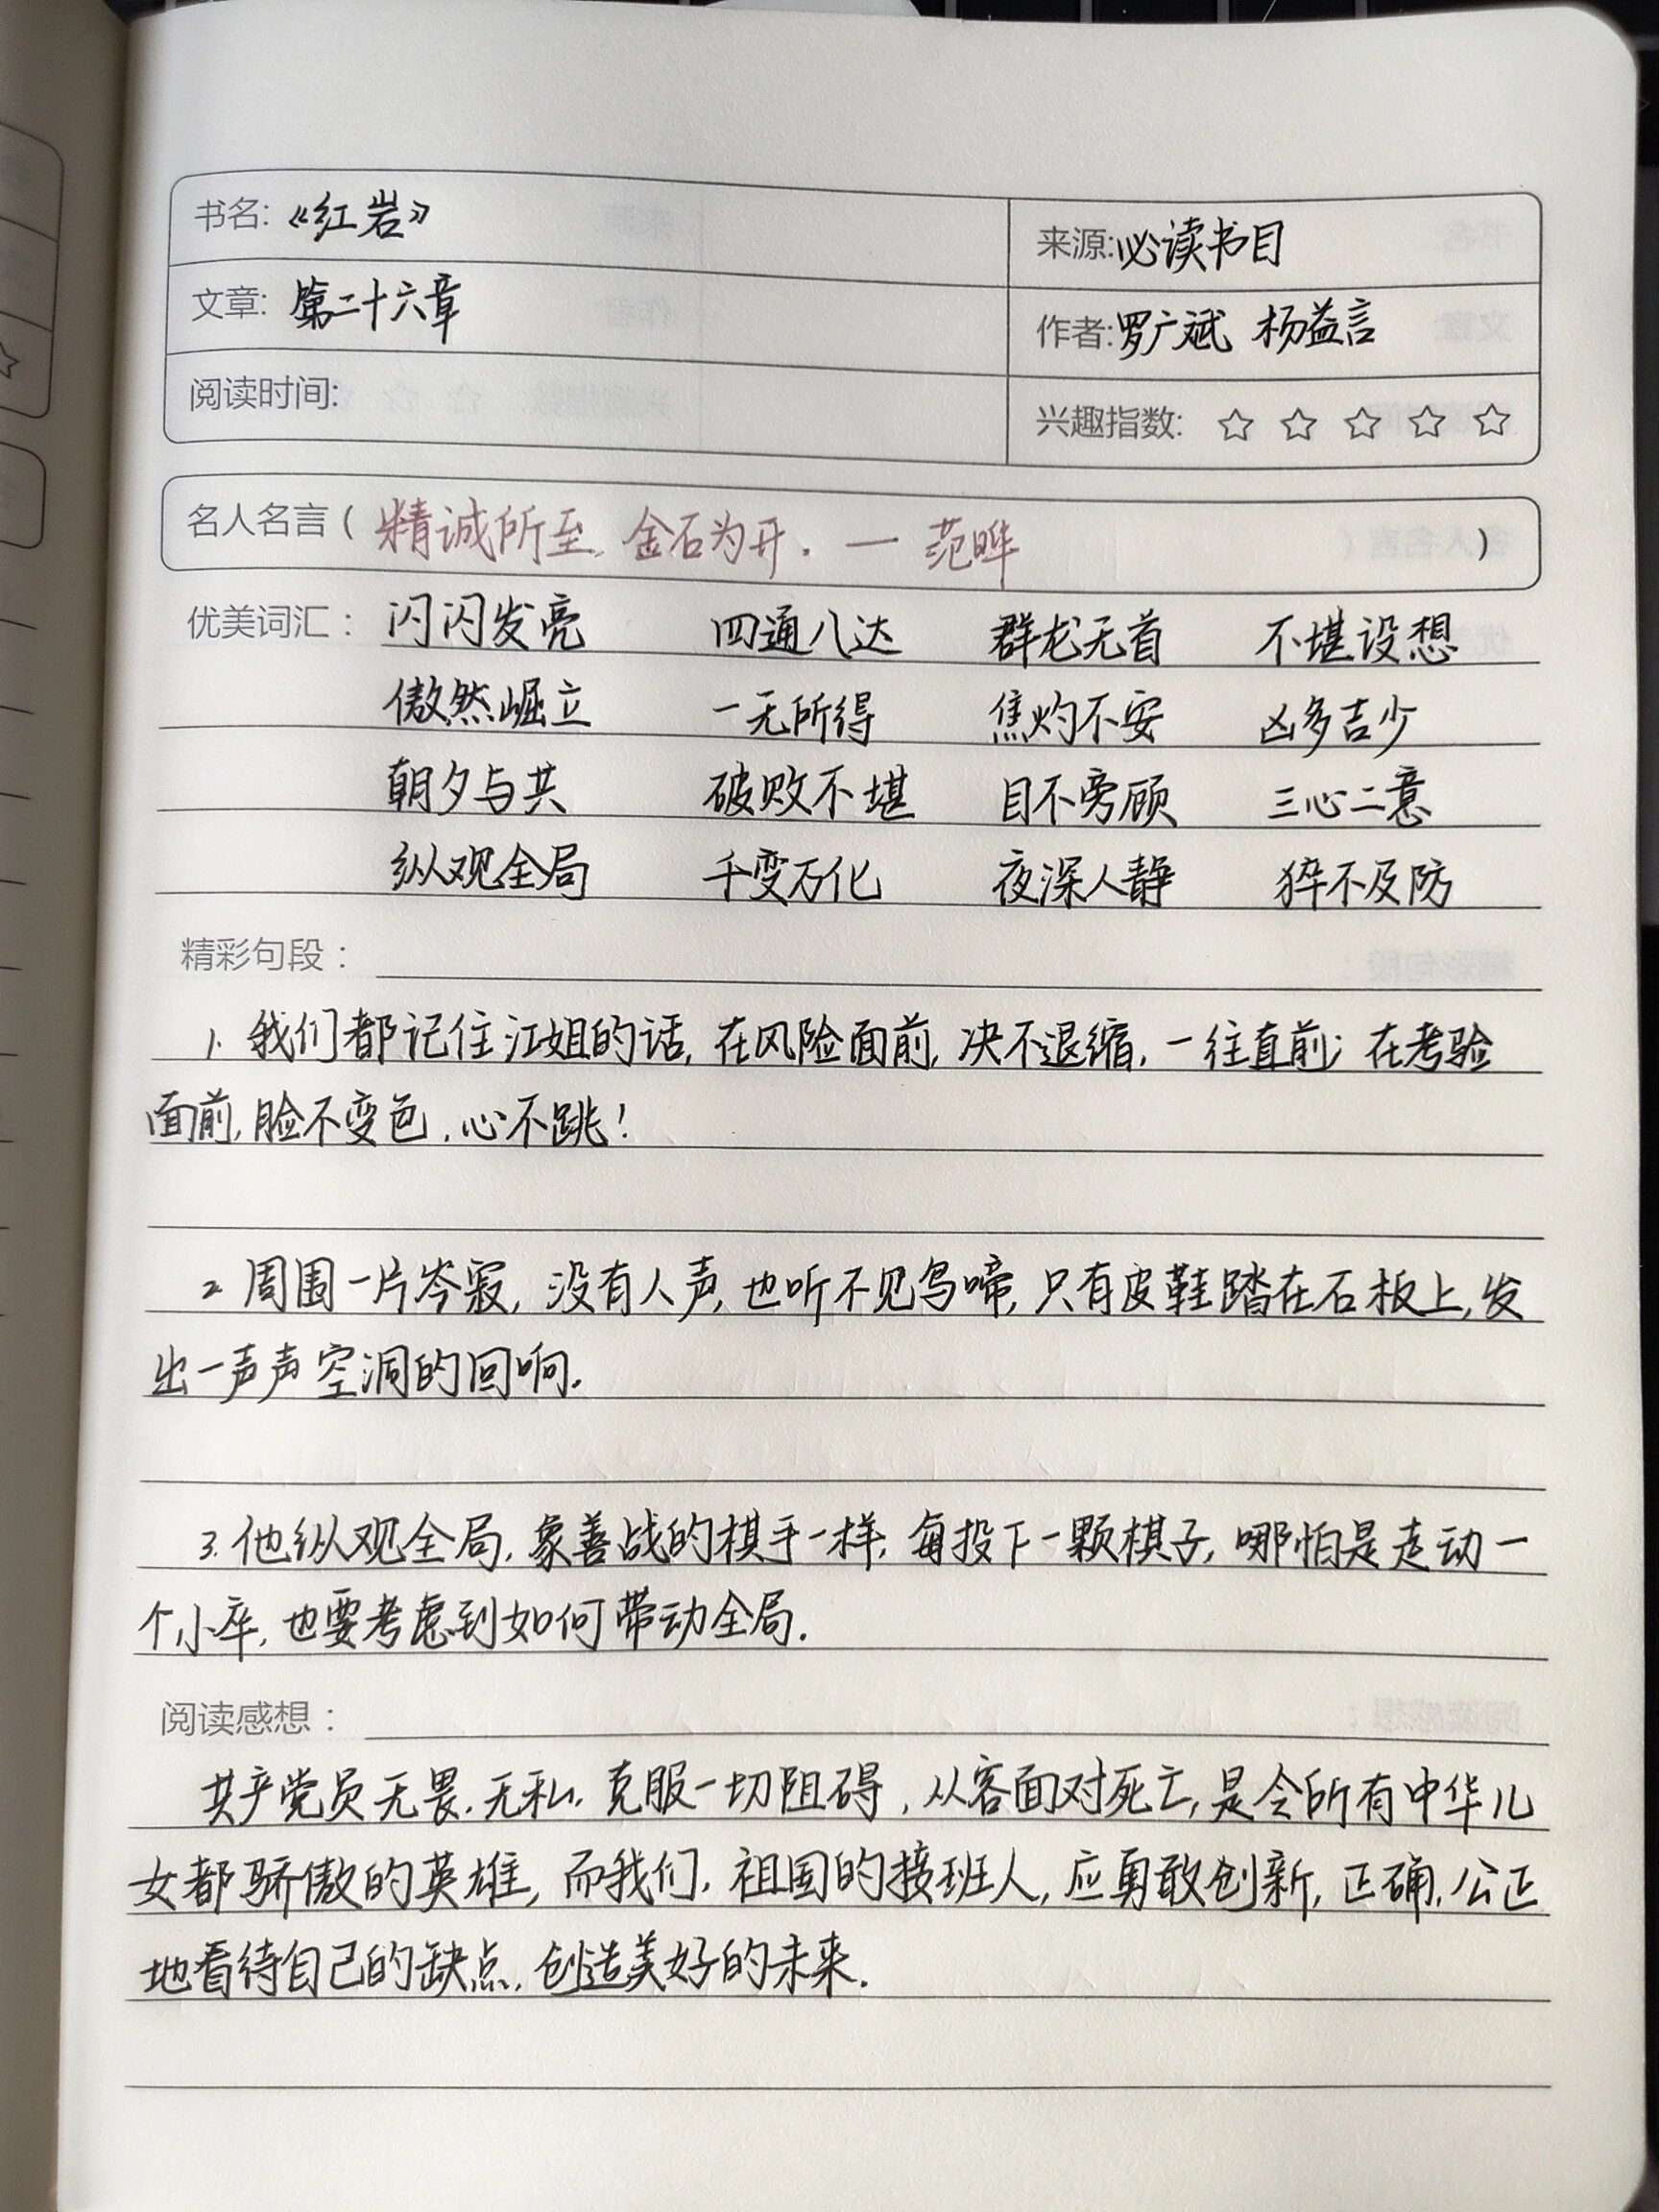 书名:《红岩》
来源:必读书目
文章: 第二十六章
作者:罗广斌 杨益言
阅读时间:
兴趣指数: ☆ ☆ ☆ ☆ ☆
名人名言( 精诚所至,金石为开. — 范晔 )
优美词汇: 闪闪发亮 四通八达 群龙无首 不堪设想
傲然崛立 一无所得 焦灼不安 凶多吉少
朝夕与共 破败不堪 目不旁顾 三心二意
纵观全局 千变万化 夜深人静 猝不及防
精彩句段:
1. 我们都记住江姐的话,在风险面前,决不退缩,一往直前;在考验
面前,脸不变色,心不跳!
2. 周围一片岑寂,没有人声,也听不见鸟啼,只有皮鞋踏在石板上,发
出一声声空洞的回响.
3. 他纵观全局,象善战的棋手一样,每投下一颗棋子,哪怕是走动一
个小卒,也要考虑到如何带动全局.
阅读感想:
共产党员无畏.无私.克服一切阻碍,从容面对死亡,是令所有中华儿
女都骄傲的英雄,而我们,祖国的接班人,应勇敢创新,正确,公正
地看待自己的缺点,创造美好的未来.